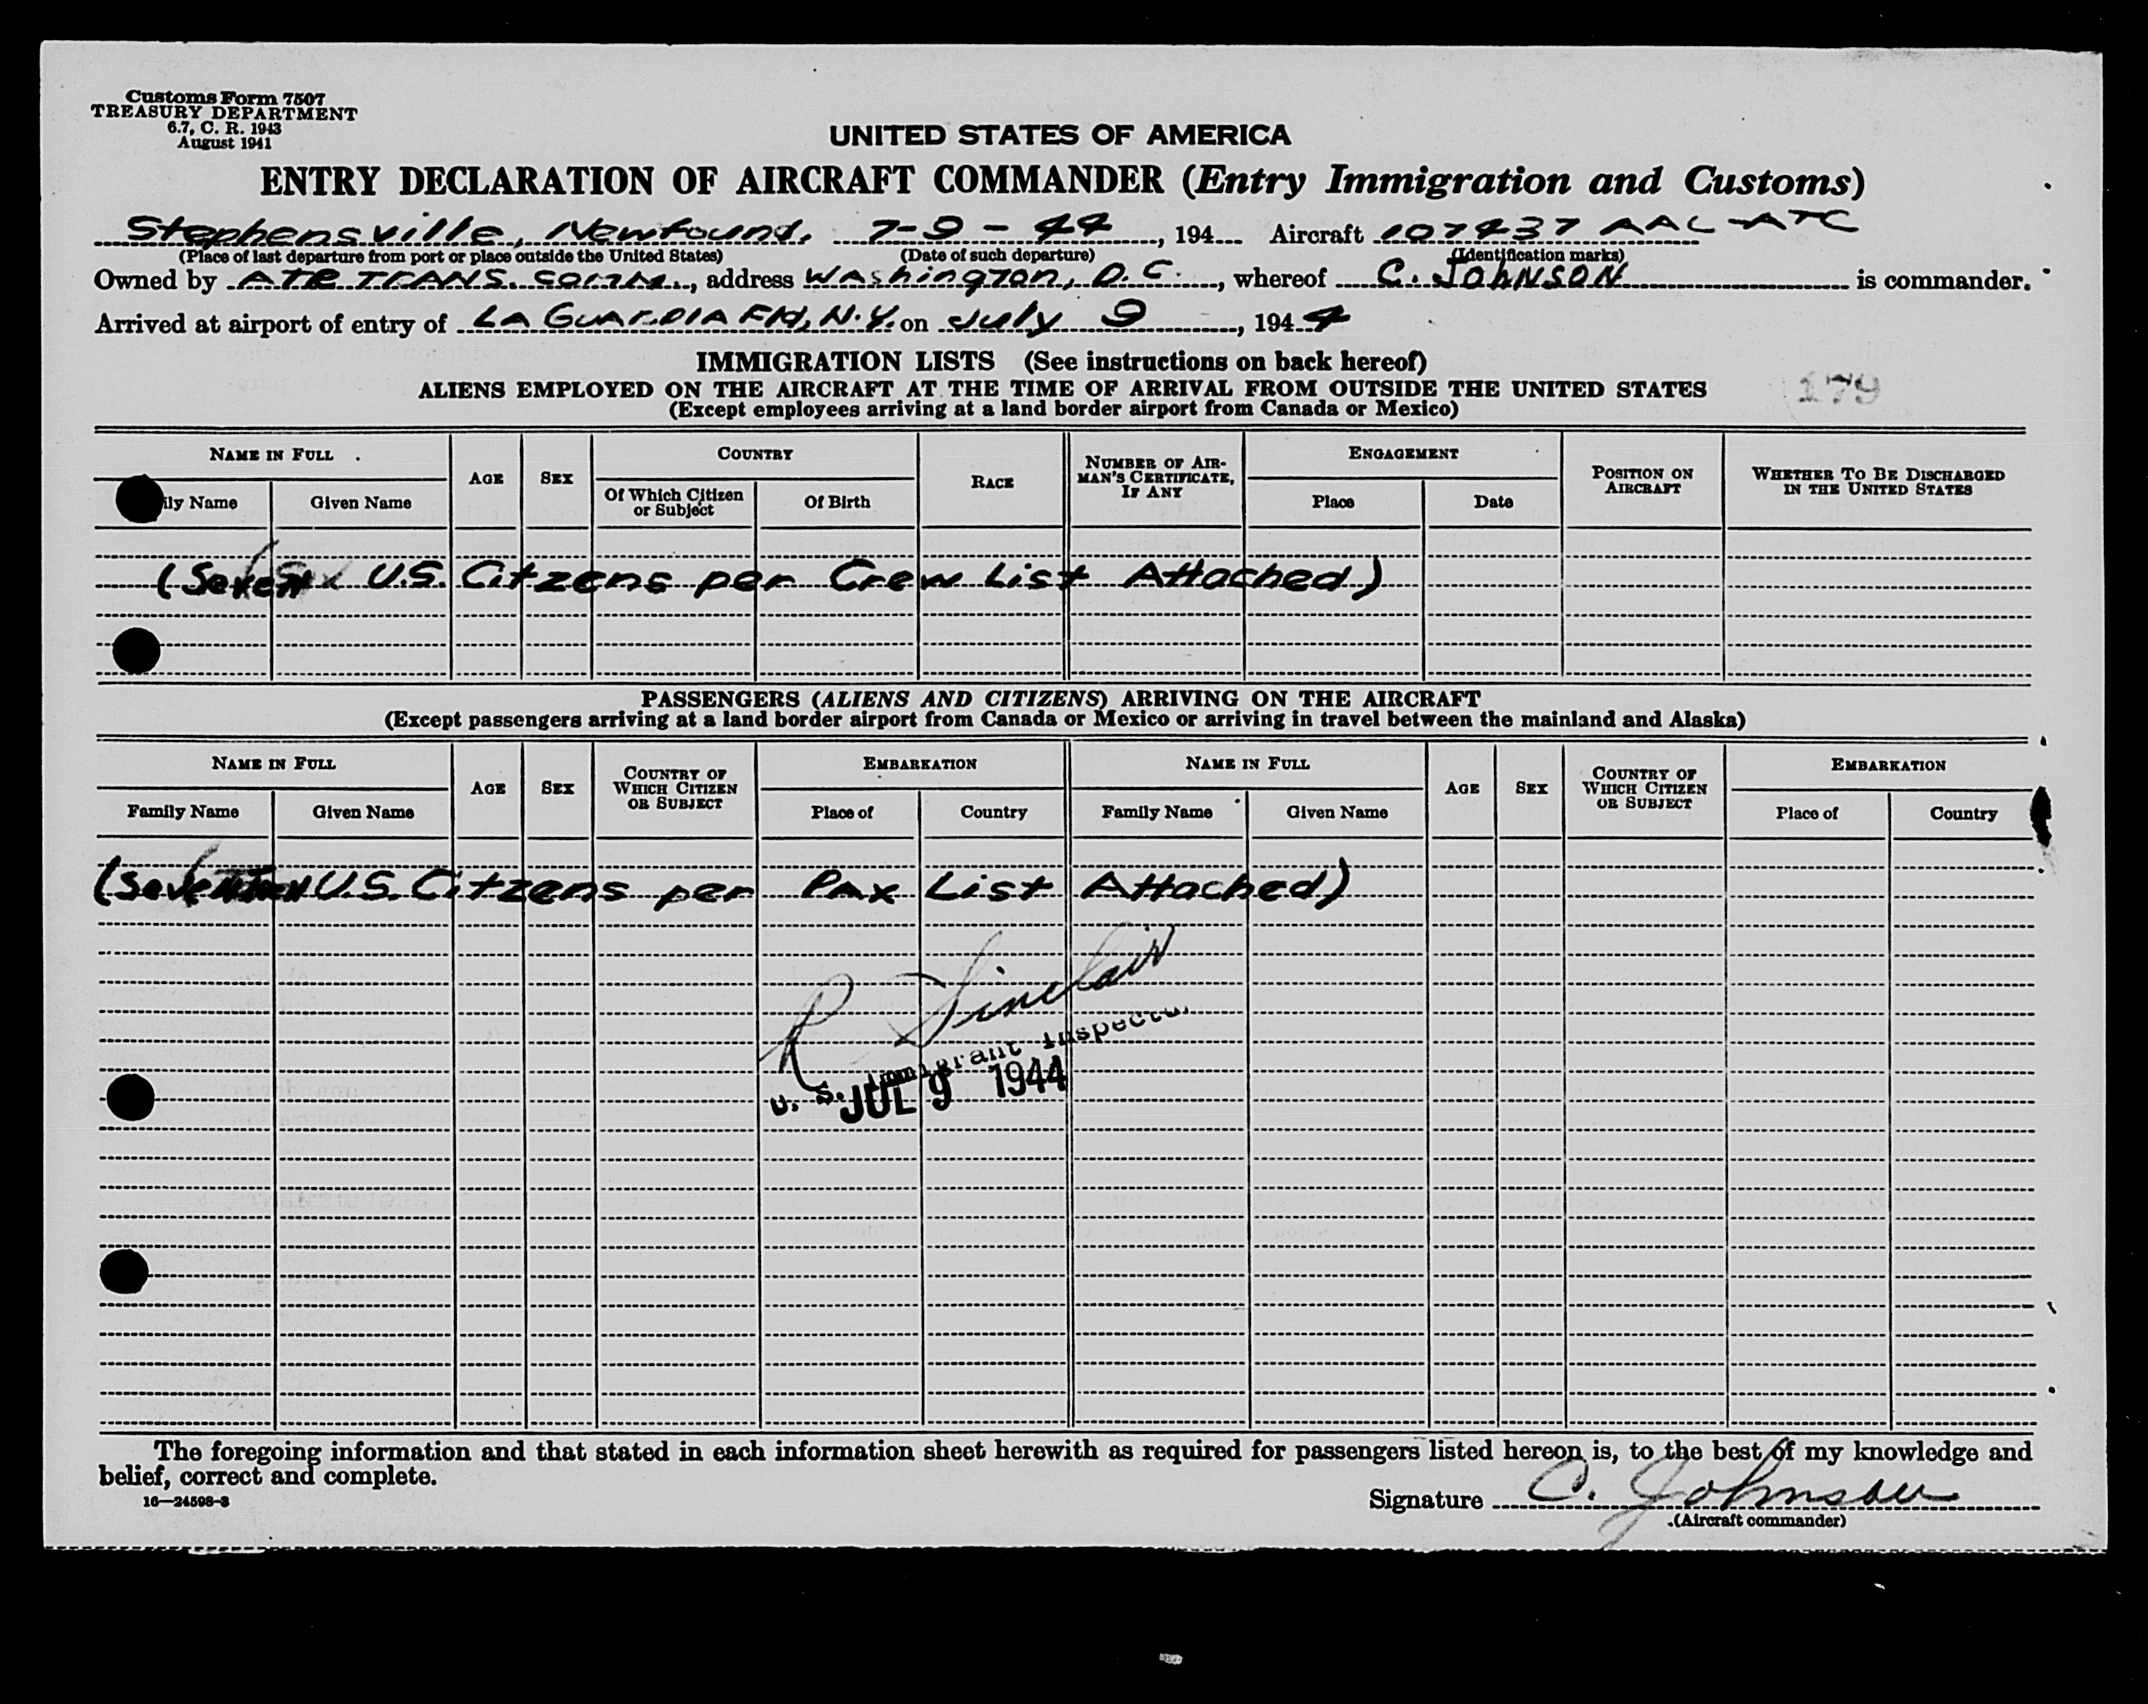 Customs Form 7507
TREASURY DEPARTMENT
6.7, C. R. 1943
August 1941
UNITED STATES OF AMERICA
ENTRY DECLARATION OF AIRCRAFT COMMANDER (Entry Immigration and Customs)
Stephensville, Newfound. 7-9-44, 194 Aircraft 107437 AAL-ATC
(Place of last departure from port or place outside the United States) (Date of such departure) (Identification marks)
Owned by AIR TRANS. COMM., address Washington, D.C., whereof C. JOHNSON is commander.
Arrived at airport of entry of LA GUARDIA Fld, N.Y. on July 9, 1944
IMMIGRATION LISTS (See instructions on back hereof)
ALIENS EMPLOYED ON THE AIRCRAFT AT THE TIME OF ARRIVAL FROM OUTSIDE THE UNITED STATES
179
(Except employees arriving at a land border airport from Canada or Mexico)
NAME IN FULL AGE SEX COUNTRY RACE NUMBER OF AIR-MAN'S CERTIFICATE, IF ANY ENGAGEMENT POSITION ON AIRCRAFT WHETHER TO BE DISCHARGED IN THE UNITED STATES
ily Name Given Name Of Which Citizen or Subject Of Birth Place Date
(Seven U.S. Citzens per Crew List Attached)
PASSENGERS (ALIENS AND CITIZENS) ARRIVING ON THE AIRCRAFT
(Except passengers arriving at a land border airport from Canada or Mexico or arriving in travel between the mainland and Alaska)
NAME IN FULL AGE SEX COUNTRY OF WHICH CITIZEN OR SUBJECT EMBARKATION NAME IN FULL AGE SEX COUNTRY OF WHICH CITIZEN OR SUBJECT EMBARKATION
Family Name Given Name Place of Country Family Name Given Name Place of Country
U.S. Citzens per Pax List Attached)
R Sinclair
U. S. Immigrant Inspector
JUL 9 1944
The foregoing information and that stated in each information sheet herewith as required for passengers listed hereon is, to the best of my knowledge and
belief, correct and complete.
16—24598-3
Signature C. Johnson
(Aircraft commander)